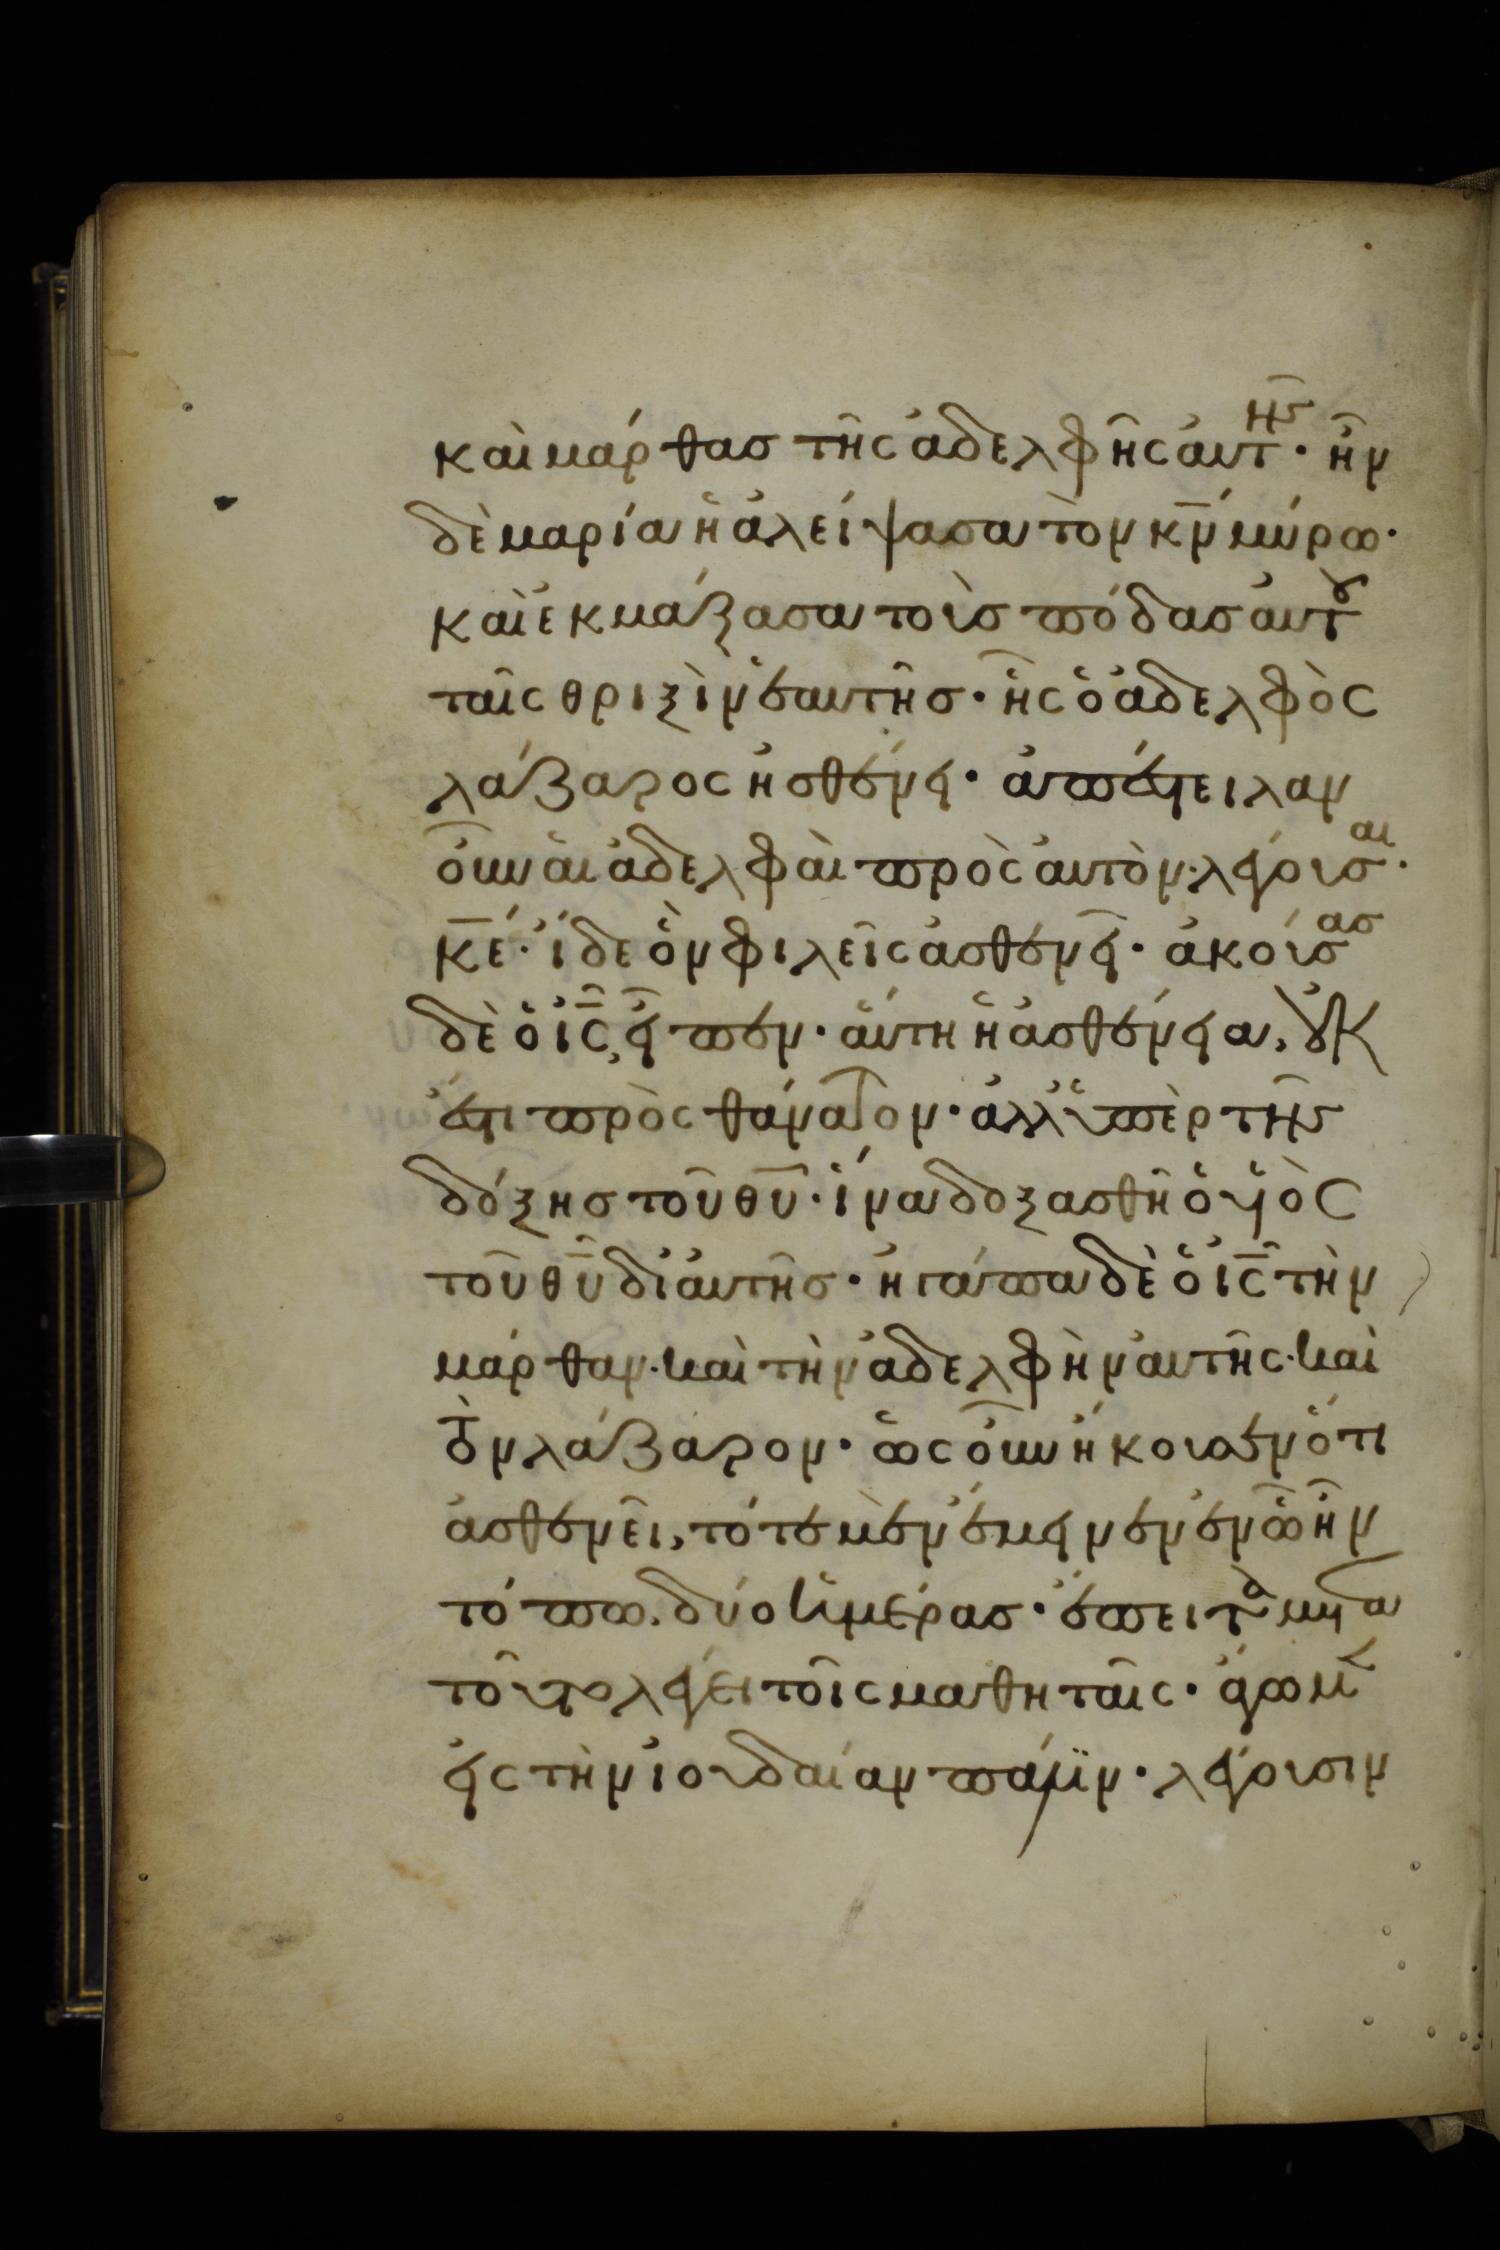 καὶ μάρθασ τῆς ἀδελφῆς αὐτῆς· ἦν
δὲ μαρία ἡ ἀλείψασα τὸν κν̄ μύρω·
καὶ ἐκμάξασα τοὺσ πόδασ αὐτοῦ
ταῖς θριξὶν ἑαυτῆσ· ἧς ὁ ἀδελφὸς
λάζαρος ἠσθένει· ἀπέστειλαν
οὖν αἱ ἀδελφαὶ πρὸς αὐτὸν· λέγουσαι·
κε̄· ἴδε ὃν φιλεῖς ἀσθενεῖ· ἀκούσας
δὲ ὁ ις̄, εἶπεν· αὕτη ἡ ἀσθένεια, οὐκ
ἔστι πρὸς θάνατον· ἀλλ' ὑπὲρ τῆς
δόξησ τοῦ θῡ· ἵνα δοξασθῆ ὁ υἱὸς
τοῦ θῡ δι' αὐτῆσ· ἠγάπα δὲ ὁ ις̄ τὴν
μάρθαν· καὶ τὴν ἀδελφὴν αὐτῆς· καὶ
τὸν λάζαρον· ὡς οὖν ἤκουσεν ὅτι
ἀσθενεῖ, τότε μὲν ἔμεινεν ἐν ὧ ἦν
τόπω. δύο ἡμέρασ· ἔπειτα μετὰ
τοῦτο λέγει τοῖς μαθηταῖς· ἄγωμεν
εἰς τὴν ἰουδαίαν πάλιν· λέγουσιν